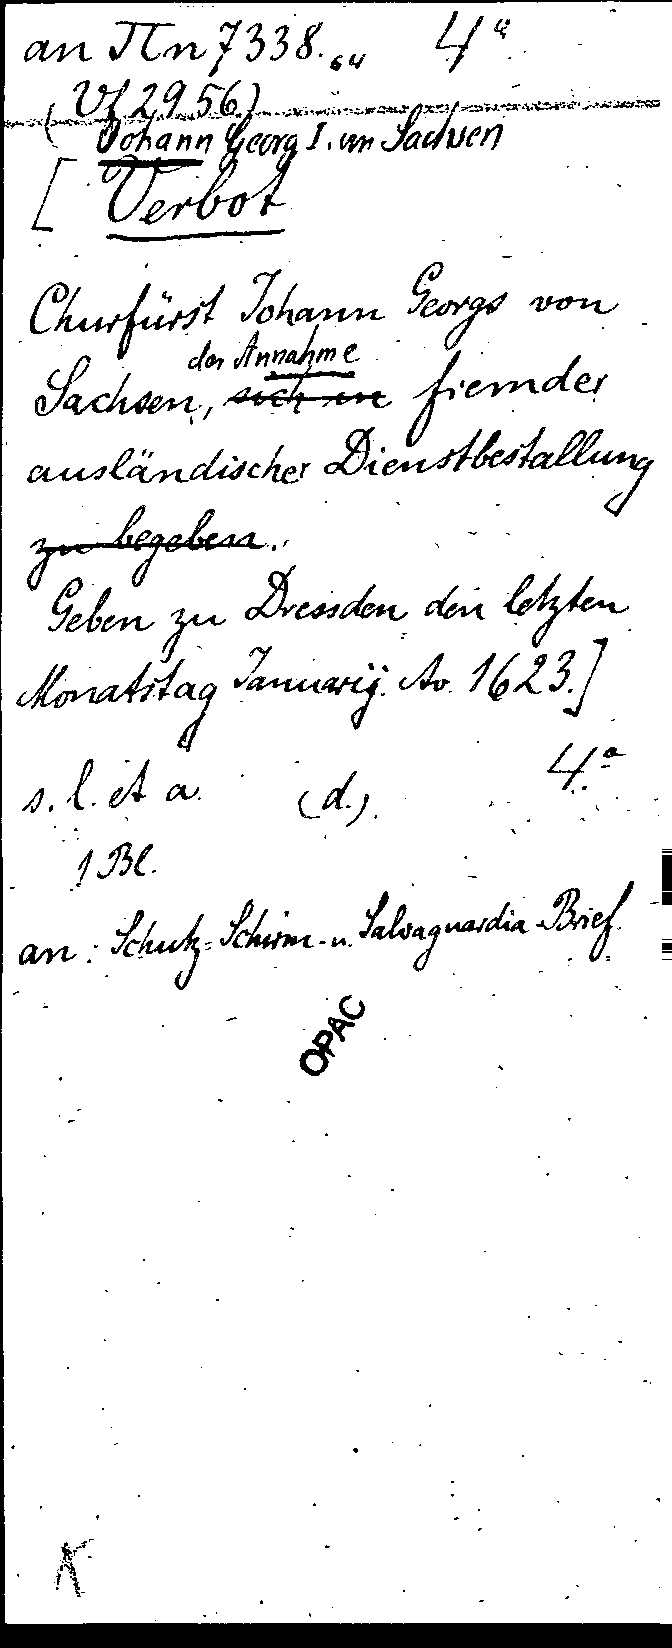 an IIn 7338. 4°
(Vf 2956)
Johann Georg I. von Sachsen
[ Verbot
Churfürst Johann Georgs von
der Annahme
Sachsen, sich in fremder
ausländischer Dienstbestallung
zu begeben.
Geben zu Dressden den letzten
Monatstag Januarij. Ao. 1623.]
s. l. et a. (d.) 4°
1 Bl.
an: Schutz-Schirm- u. Salvaguardia-Brief.
OPAC
K